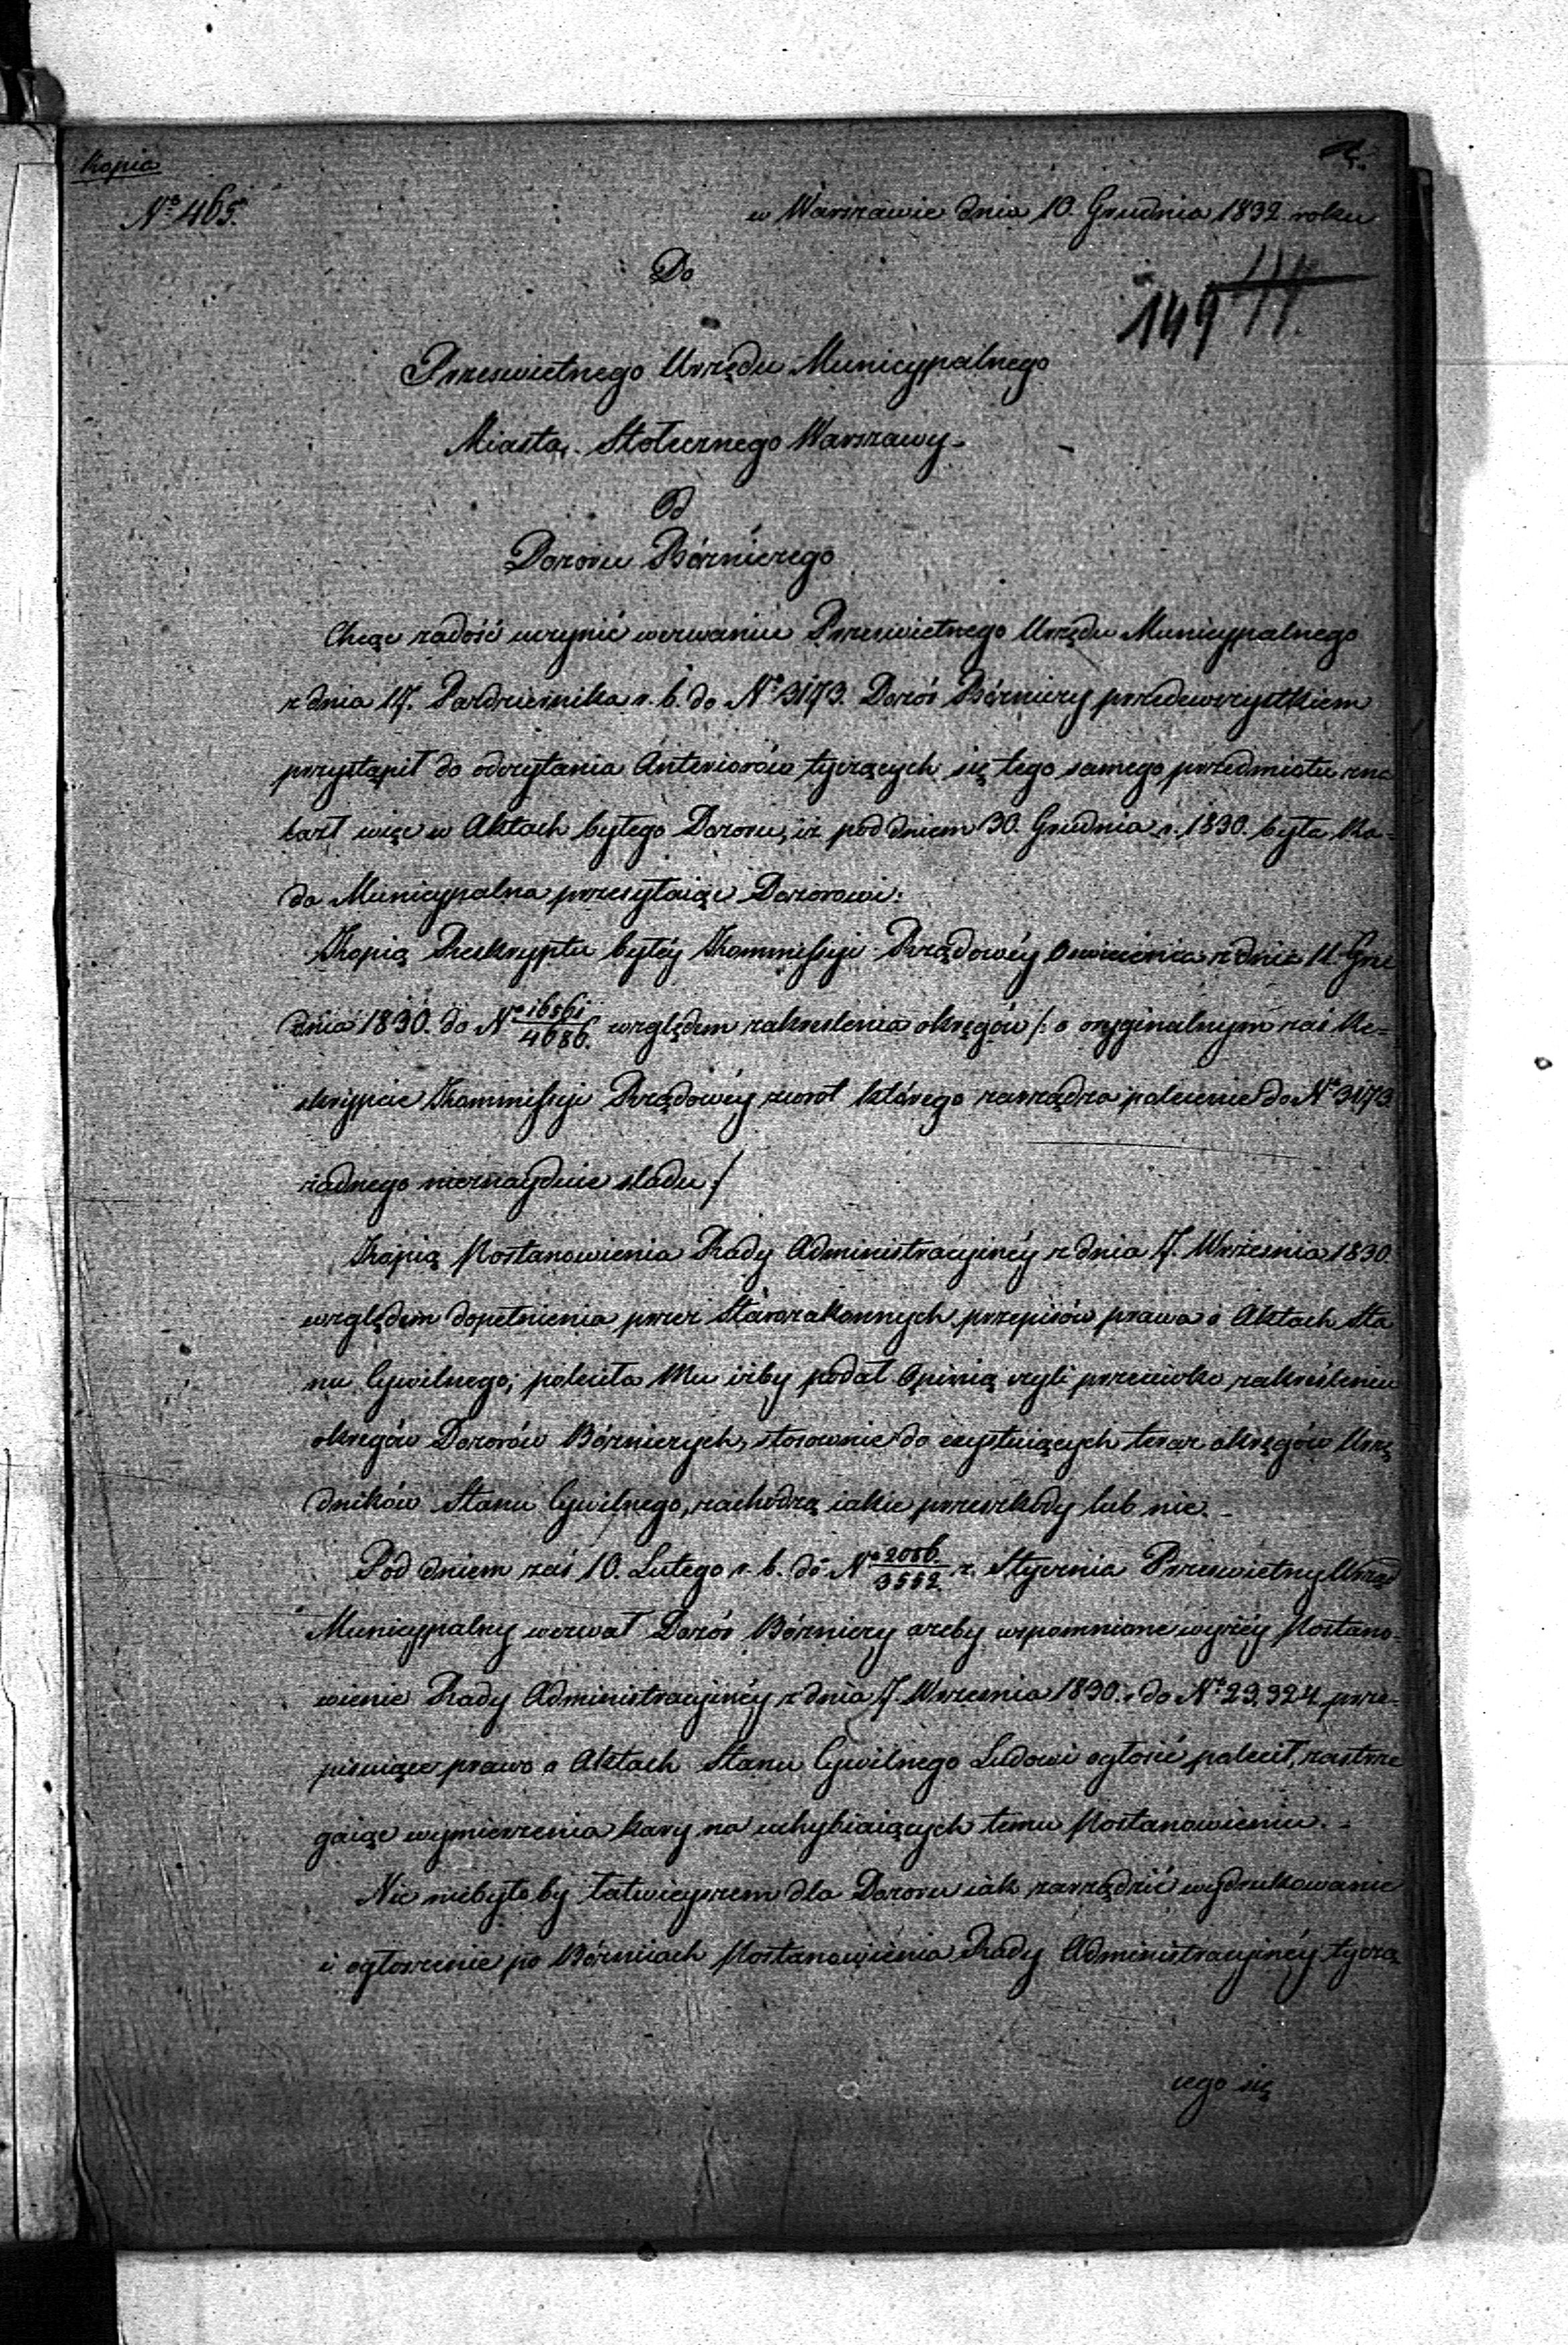 Kopia
N° 465.
w Warszawie dnia 10. Grudnia 1832 roku
Do
149 44.
Prześwietnego Urzędu Municypalnego
Miasta Stołecznego Warszawy
Od
Dozoru Bóżniczego
Chcąc zadość uczynić wezwaniu Prześwietnego Urzędu Municypalnego
z dnia 17. Października r. b. do N° 3173. Dozór Bóżniczy przedewszystkiem
przystąpił do odczytania Anteriorów tyczących się tego samego przedmiotu zna
lazł więc w Aktach byłego Dozoru, iż pod dniem 30. Grudnia r. 1830. była Ra=
da Municypalna przesyłaiąc Dozorowi:
Kopią Reskryptu byłéy Kommissyi Rządowéy Oswiecenia z dnia 11 Gru
dnia 1830. do N° 16561/4686. względem zakreslenia okręgów /: o oryginalnym zaś Re=
skrypcie Kommissyi Rządowéy zwrot którego zarządza polecenie do N° 3173
żadnego nieznayduie sladu :/
Kopią Postanowienia Rady Administracyinéy z dnia 7. Wrzesnia 1830.
względem dopełnienia przez Starozakonnych przepisów prawa o Aktach Sta
nu Cywilnego; poleciła Mu iżby podał Opinią czyli przeciwko zakreśleniu
okregów Dozorów Bóżniczych, stosownie do exystuiących teraz okręgów Urzę
dników Stanu Cywilnego, zachodzą iakie przeszkody lub nie.
Pod dniem zaś 10. Lutego r. b. do N° 2056./3552. z. Stycznia Prześwietny Urząd
Municypalny wezwał Dozór Bóżniczy ażeby wspomnione wyżéy Postano=
wienie Rady Administracyinéy z dnia 7. Wrzesnia 1830. do N° 23,924 prze=
pisuiące prawo o Aktach Stanu Cywilnego Ludowi ogłosić polecił, zastrze
gaiąc wymierzenia kary na uchybiaiących temu Postanowieniu.
Nic niebyłoby łatwieyszem dla Dozoru iak zarządzić wydrukowanie
i ogłoszenie po Bóżnicach Postanowienia Rady Administracyinéy tyczą
cego się